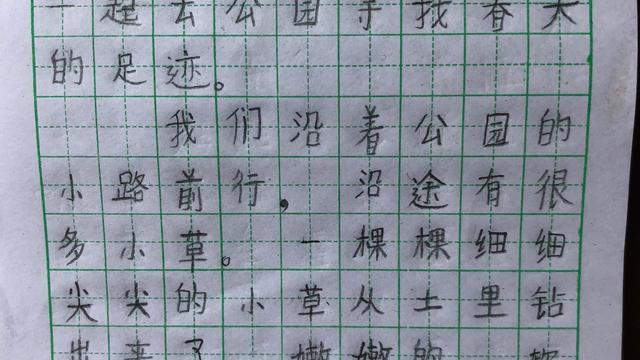 一起去公园寻找春天
的足迹。
我们沿着公园的
小路前行,沿途有很
多小草。一棵棵细细
尖尖的小草从土里钻
出来了 嫩嫩的